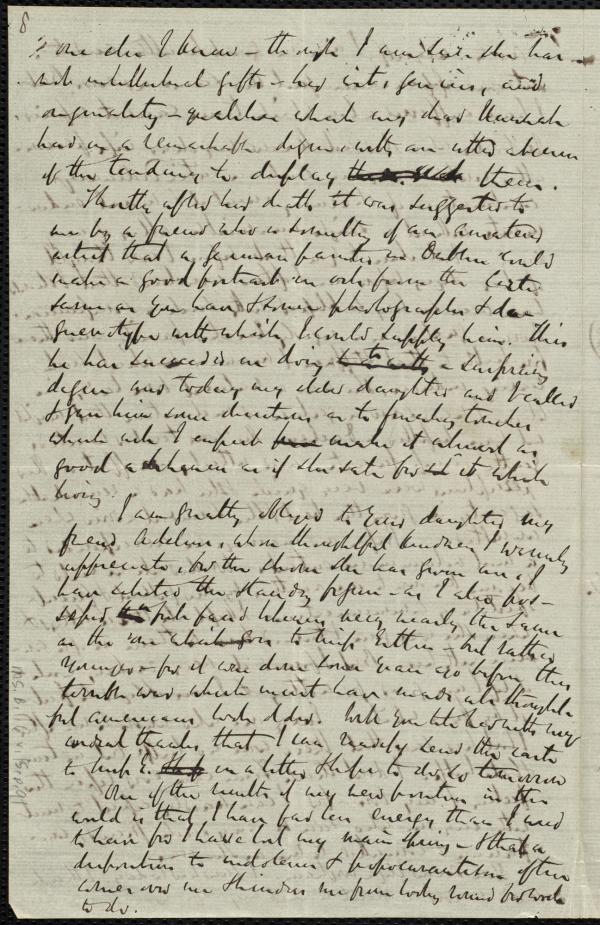 8
? one else I knew – though I am sure she has
not intellectual gifts – had wit, genius, and
originality – qualities which my dear Hannah
had in a remarkable degree, with an utter absence
of the tendency to display them.
Shortly after her death it was suggested to
me by a friend who is somewhat of an amateur
artist that a german painter in Dublin could
make a good portrait in oils from the carte
same as you have & some photographs & da
guerrotype with which I could supply him. This
he has succeeded in doing to a surprising
degree and today my elder daughter and I called
& gave him some directions as to finishing touches
which will I expect make it almost as
good a likeness as if she sat for it while
living.
I am greatly obliged to your daughter my
friend Adeline, whose thoughtful kindness I warmly
appreciate, for the choice she has given me, I
have selected the standing figure – as I also pos–
sessed profile faced likeness very nearly the same
as the one which goes to Miss Estlin – but rather
younger – for it was done some years ago before this
terrible war which must have made all thought
ful americans look older. Will you tell her with my
cordial thanks that I can readily send the carte
to Miss E. in a letter I hope to do so tomorrow
One of the results of my new position in the
world is that I have far less energy than I used
to have for I have lost my main spring – & that a
disposition to indolence & procrastination often
comes over me & hinders me from looking round for work
to do.